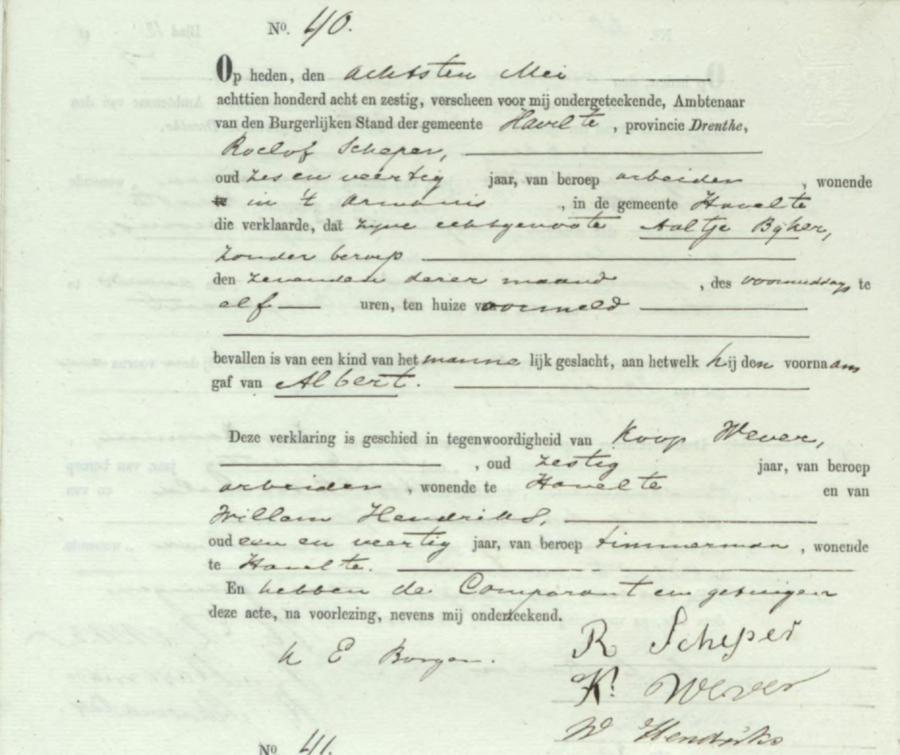 No. 40.
Op heden, den achtsten Mei
achttien honderd acht en zestig, verscheen voor mij ondergeteekende, Ambtenaar
van den Burgerlijken Stand der gemeente Havelte, provincie Drenthe,
Roelof Scheper,
oud zes en veertig jaar, van beroep arbeider, wonende
in 't , in de gemeente Havelte
die verklaarde, dat zijne echtgenoote Aaltje Bijker,
zonder beroep
den zevenden dezer maand, des voormiddags te
elf uren, ten huize voormeld
bevallen is van een kind van het mannelijk geslacht, aan hetwelk hij den voornaam
gaf van Albert.
Deze verklaring is geschied in tegenwoordigheid van Koop Wever,
, oud zestig jaar, van beroep
arbeider, wonende te Havelte en van
Willem Hendriks,
oud een en veertig jaar, van beroep timmerman, wonende
te Havelte.
En hebben de Comparant en getuigen
deze acte, na voorlezing, nevens mij onderteekend.
R Scheper
K. Wever
W Hendriks
No 41.